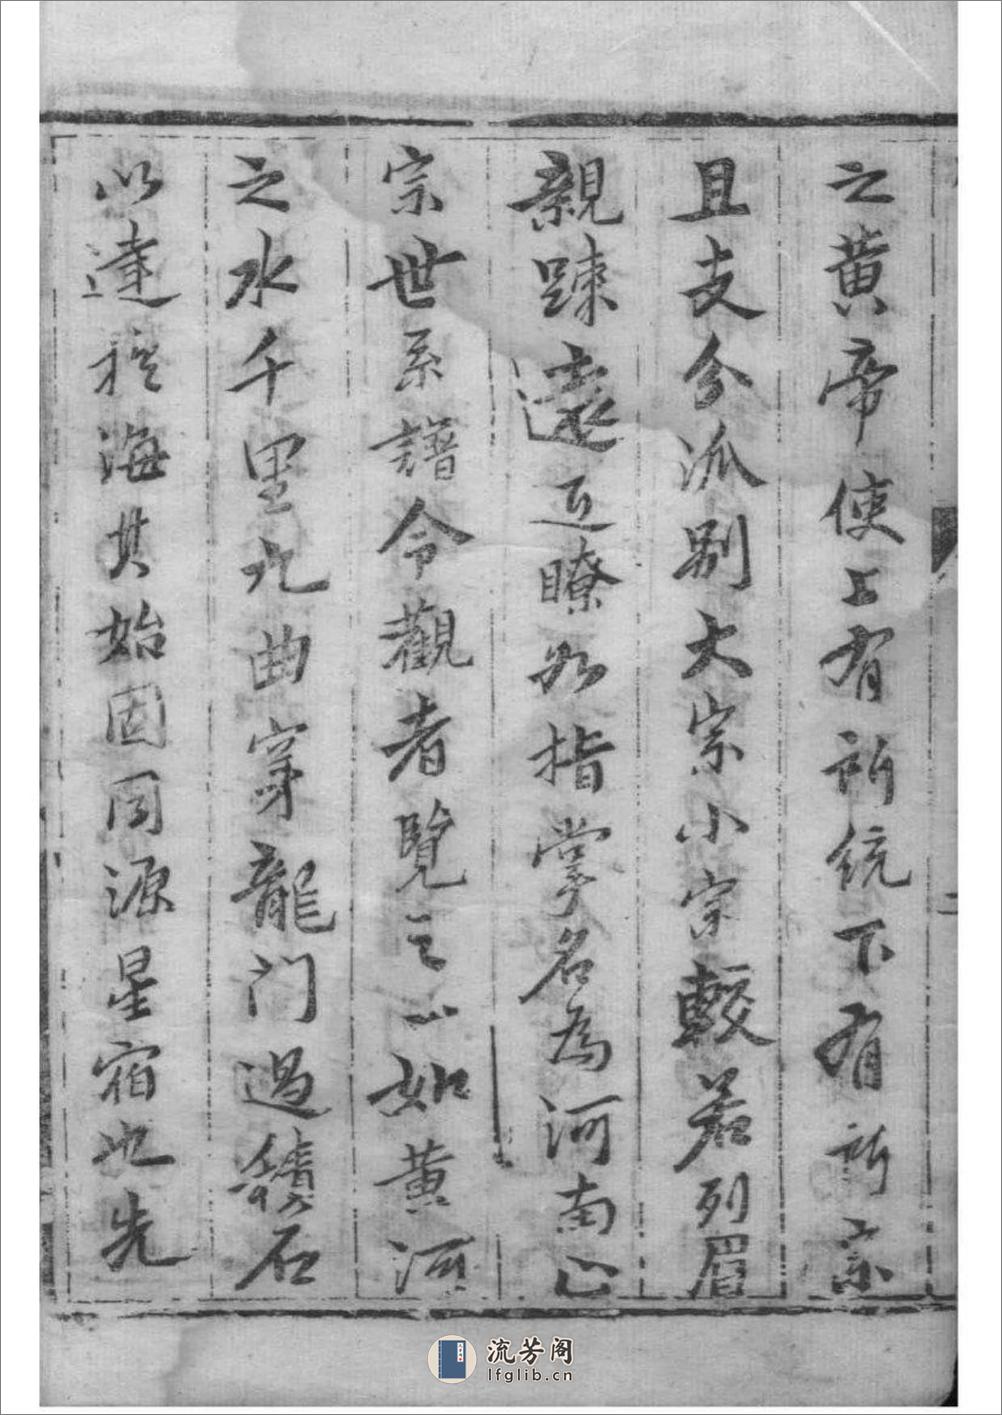 之黃帝使上有所統下有所宗
且支分派別大宗小宗較若列眉
親疎遠近瞭如指掌名為河南正
宗世系譜令觀者覽之一如黃河
之水千里九曲穿龍門過積石
以達於海其始固同源星宿也先
二
流芳阁
lfglib.cn